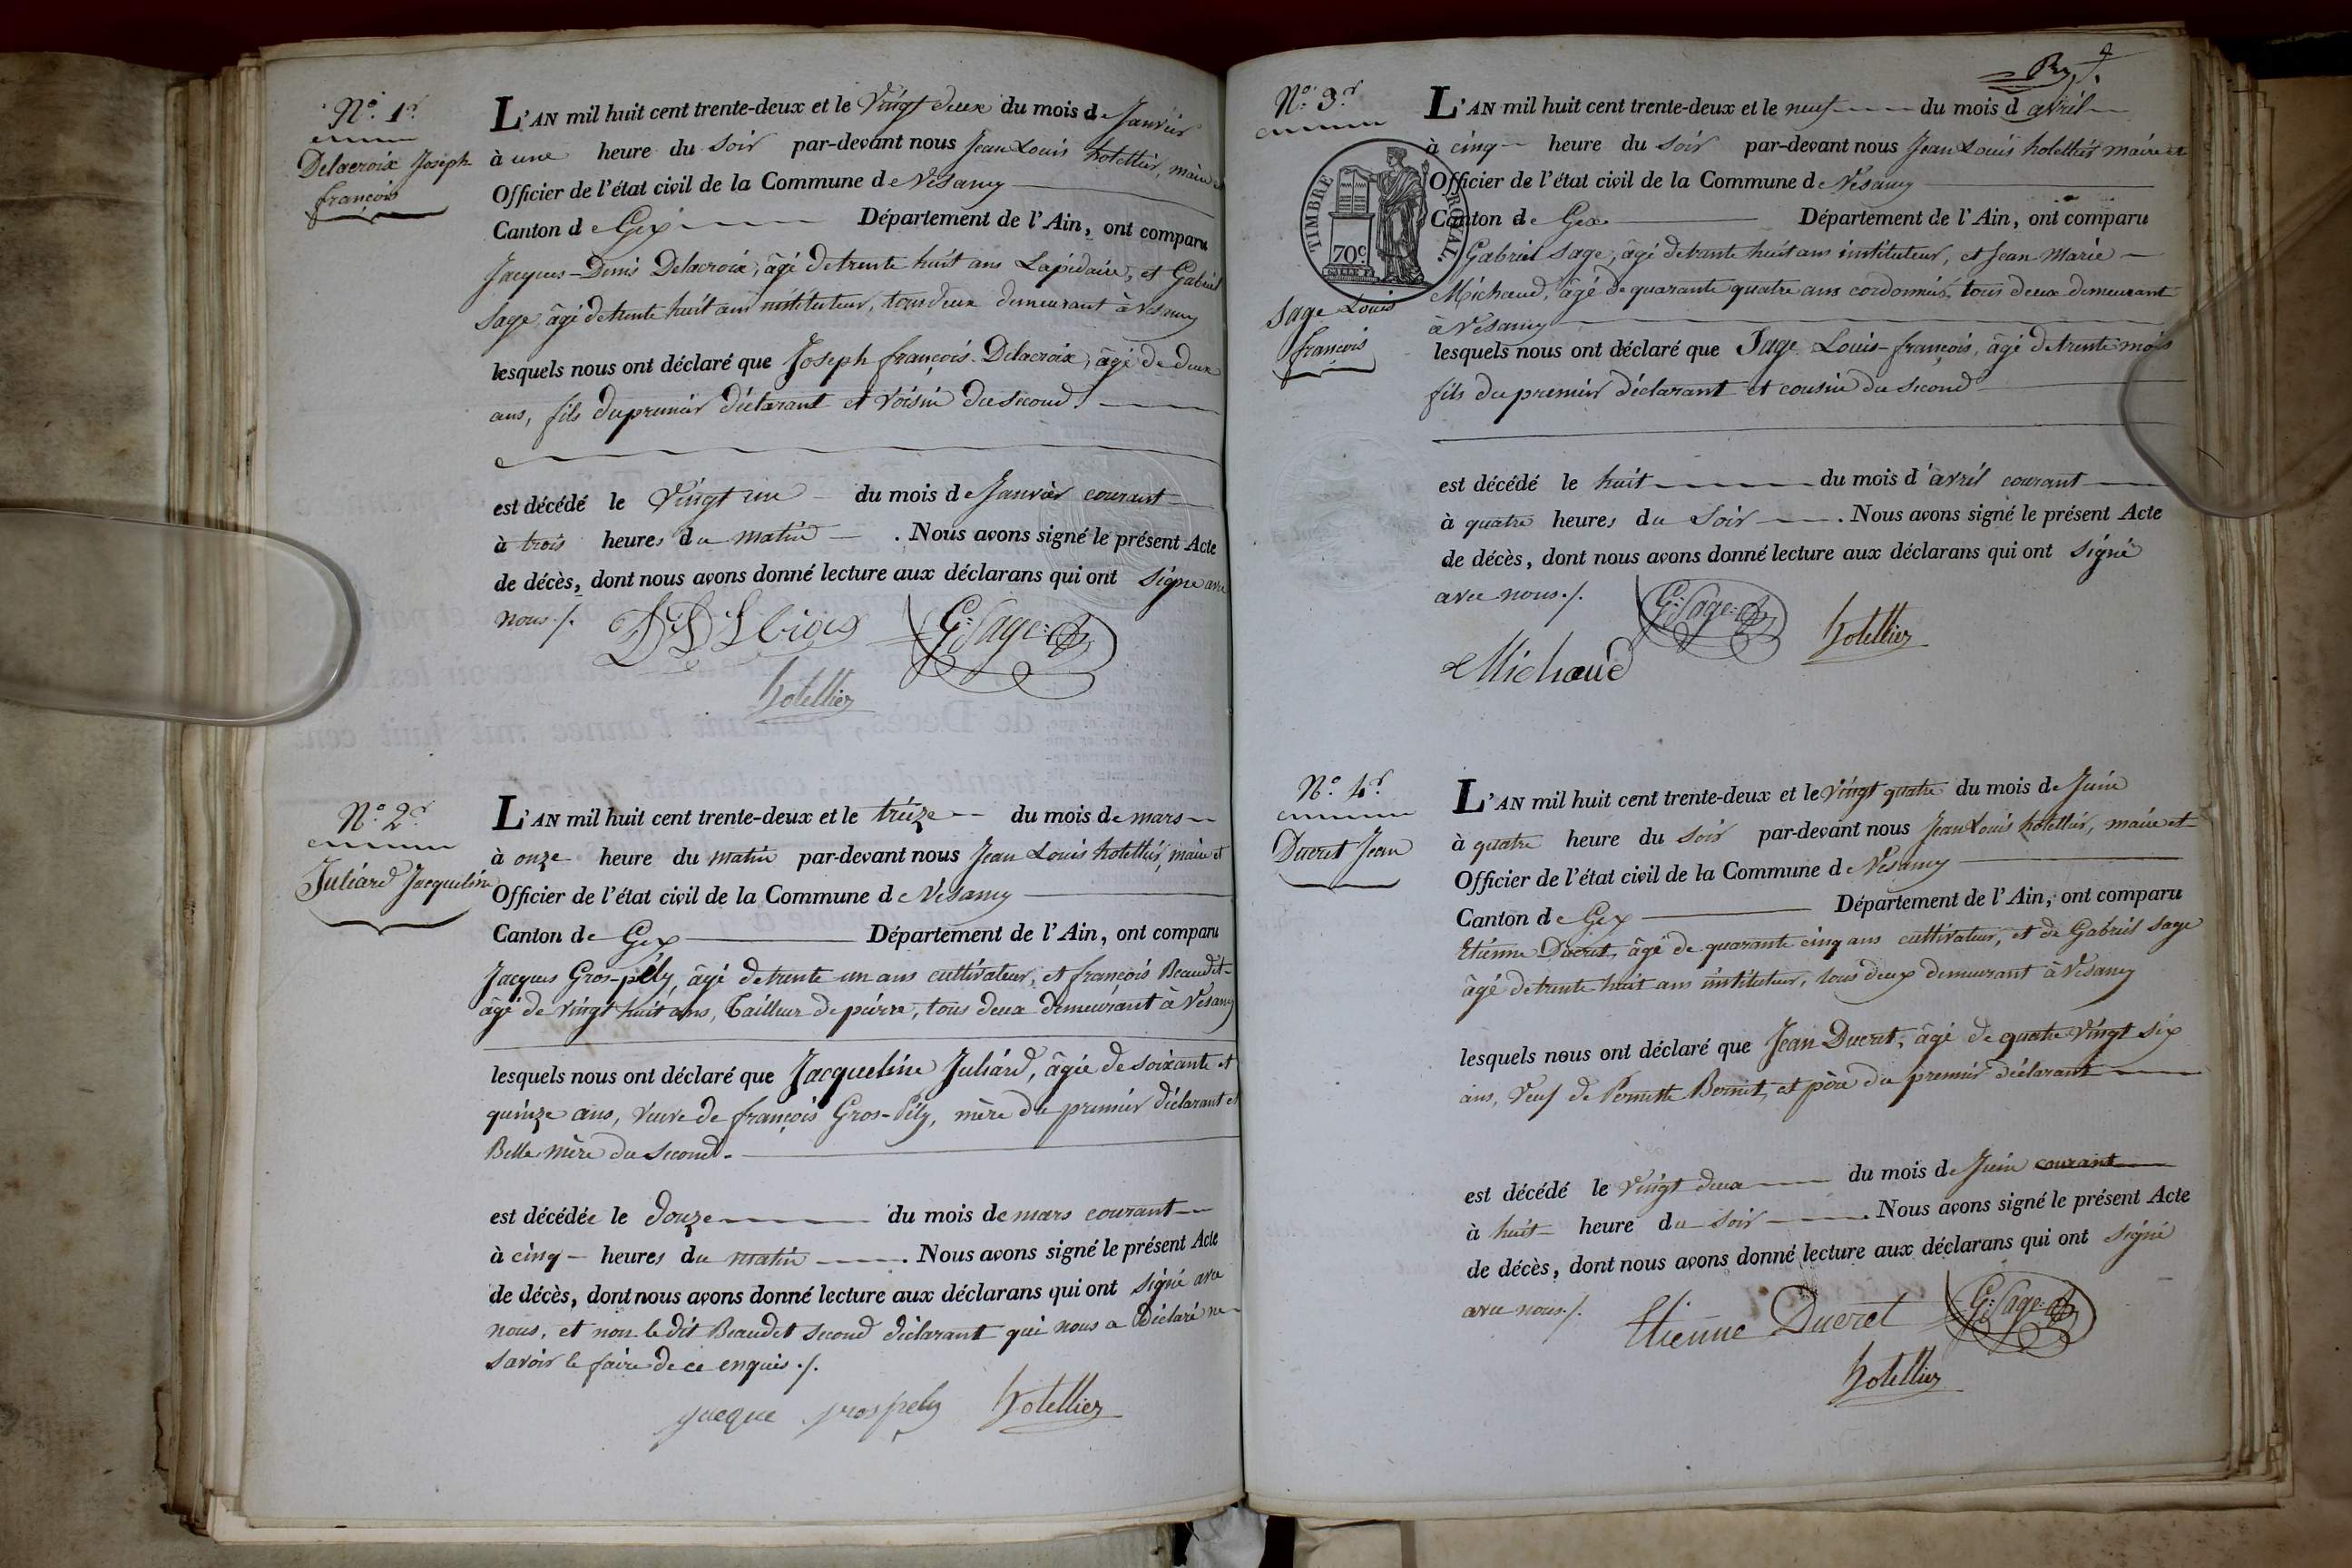 N.º 1.r
Delacroix Joseph
françois
L'AN mil huit cent trente-deux et le vingt deux du mois de Janvier
à une heure du soir par-devant nous Jean Louis hotellier, maire et
Officier de l'état civil de la Commune de Vésancy
Canton de Gex Département de l'Ain, ont comparu
Jacques-Denis Delacroix, âgé de trente huit ans Lapidaire, et Gabriel
Sage, âgé de trente huit ans instituteur, tous deux demeurant à Vésancy
lesquels nous ont déclaré que Joseph françois Delacroix, âgé de deux
ans, fils du premier déclarant et voisin du second.
est décédé le vingt un du mois de Janvier courant
à trois heures du matin . Nous avons signé le présent Acte
de décès, dont nous avons donné lecture aux déclarans qui ont signé avec
nous ./.
G: Sage
hotellier
N.º 2.r
Juliard Jacqueline
L'AN mil huit cent trente-deux et le treize du mois de mars
à onze heure du matin par-devant nous Jean Louis hotellier, maire et
Officier de l'état civil de la Commune de Vésancy
Canton de Gex Département de l'Ain, ont comparu
Jacques Gros-pély, âgé de trente un ans cultivateur, et françois Beaudet
âgé de vingt huit ans, Tailleur de pierre, tous deux demeurant à Vésancy
lesquels nous ont déclaré que Jacqueline Juliard, âgée de soixante et
quinze ans, veuve de françois Gros-Pély, mère du premier déclarant et
Belle mère du second.
est décédée le douze du mois de mars courant
à cinq heures du matin . Nous avons signé le présent Acte
de décès, dont nous avons donné lecture aux déclarans qui ont signé avec
nous, et non le dit Beaudet second déclarant qui nous a déclaré ne
savoir le faire de ce enquis ./.
jacque grospely hotellier
N.º 3.r
TIMBRE ROYAL.
70c
Sage Louis
françois
L'AN mil huit cent trente-deux et le neuf du mois d'avril
à cinq heure du soir par-devant nous Jean Louis hotellier maire et
Officier de l'état civil de la Commune de Vésancy
Canton de Gex Département de l'Ain, ont comparu
Gabriel Sage, âgé de trante huit ans instituteur, et Jean-Marie
Michaud, âgé de quarante quatre ans cordonnier, tous deux demeurant
à Vésancy
lesquels nous ont déclaré que Sage Louis-françois, âgé de trente mois
fils du premier déclarant et cousin du second
est décédé le huit du mois d'avril courant
à quatre heures du soir . Nous avons signé le présent Acte
de décès, dont nous avons donné lecture aux déclarans qui ont signé
avec nous ./.
G: Sage
hotellier
Michaud
N.º 4.r
Ducret Jean
L'AN mil huit cent trente-deux et le vingt quatre du mois de Juin
à quatre heure du soir par-devant nous Jean Louis hotellier, maire et
Officier de l'état civil de la Commune de Vésancy
Canton de Gex Département de l'Ain, ont comparu
Etienne Ducret, âgé de quarante cinq ans cultivateur, et de Gabriel Sage
âgé de trente huit ans instituteur, tous deux demeurant à Vésancy
lesquels nous ont déclaré que Jean Ducret, âgé de quatre vingt six
ans, veuf de Pernette Bernet, et père du premier déclarant
est décédé le vingt deux du mois de Juin courant
à huit heure du soir . Nous avons signé le présent Acte
de décès, dont nous avons donné lecture aux déclarans qui ont signé
avec nous ./.
Etienne Ducret G: Sage
hotellier